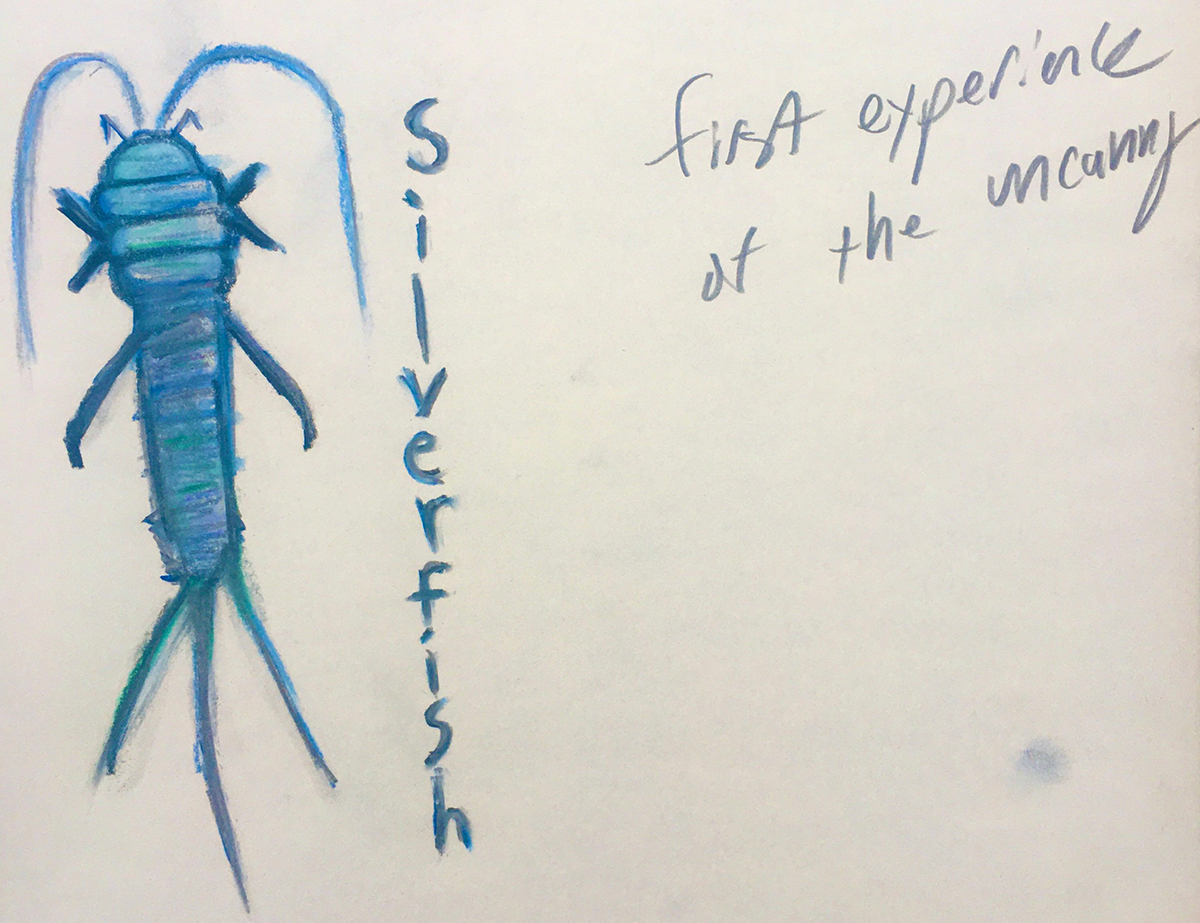 Silverfish
first experience
of the uncanny